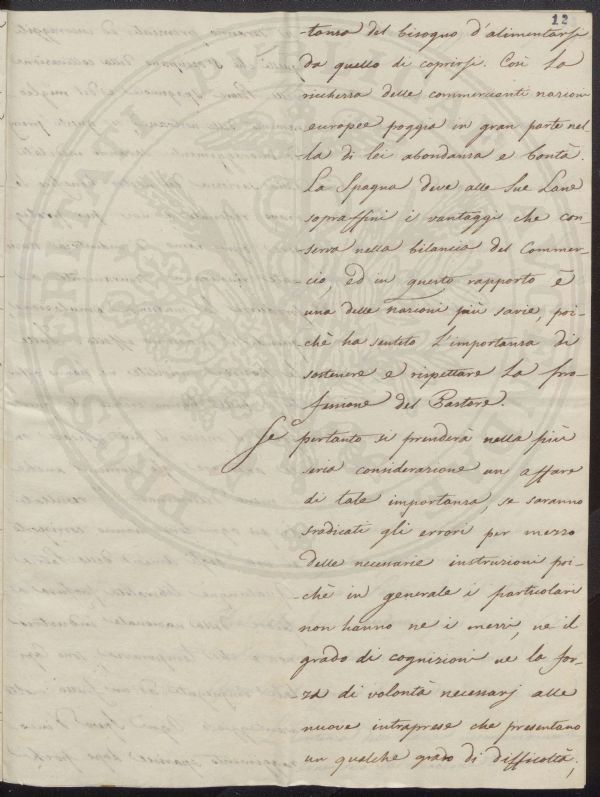 12
-tanza del bisogno d'alimentarsi
da quello di coprirsi. Così La
ricchezza delle commercianti nazioni
europee poggia in gran parte nel-
la di lei abondanza e bontà.
La Spagna deve alle Sue Lane
sopraffini i vantaggi che con-
serva nella bilancia del Commer-
cio, ed in questo rapporto è
una delle nazioni più savie, poi-
chè ha sentito L'importanza di
sostenere e rispettare La Pro-
fessione del Pastore.
Se pertanto si prenderà nella più
seria considerazione un affare
di tale importanza, se saranno
sradicati gli errori per mezzo
delle necessarie instruzioni poi-
chè in generale i particolari
non hanno ne i mezzi, ne il
grado di cognizioni ne la for-
za di volontà necessarj alle
nuove intraprese che presentano
un qualche grado di difficoltà,